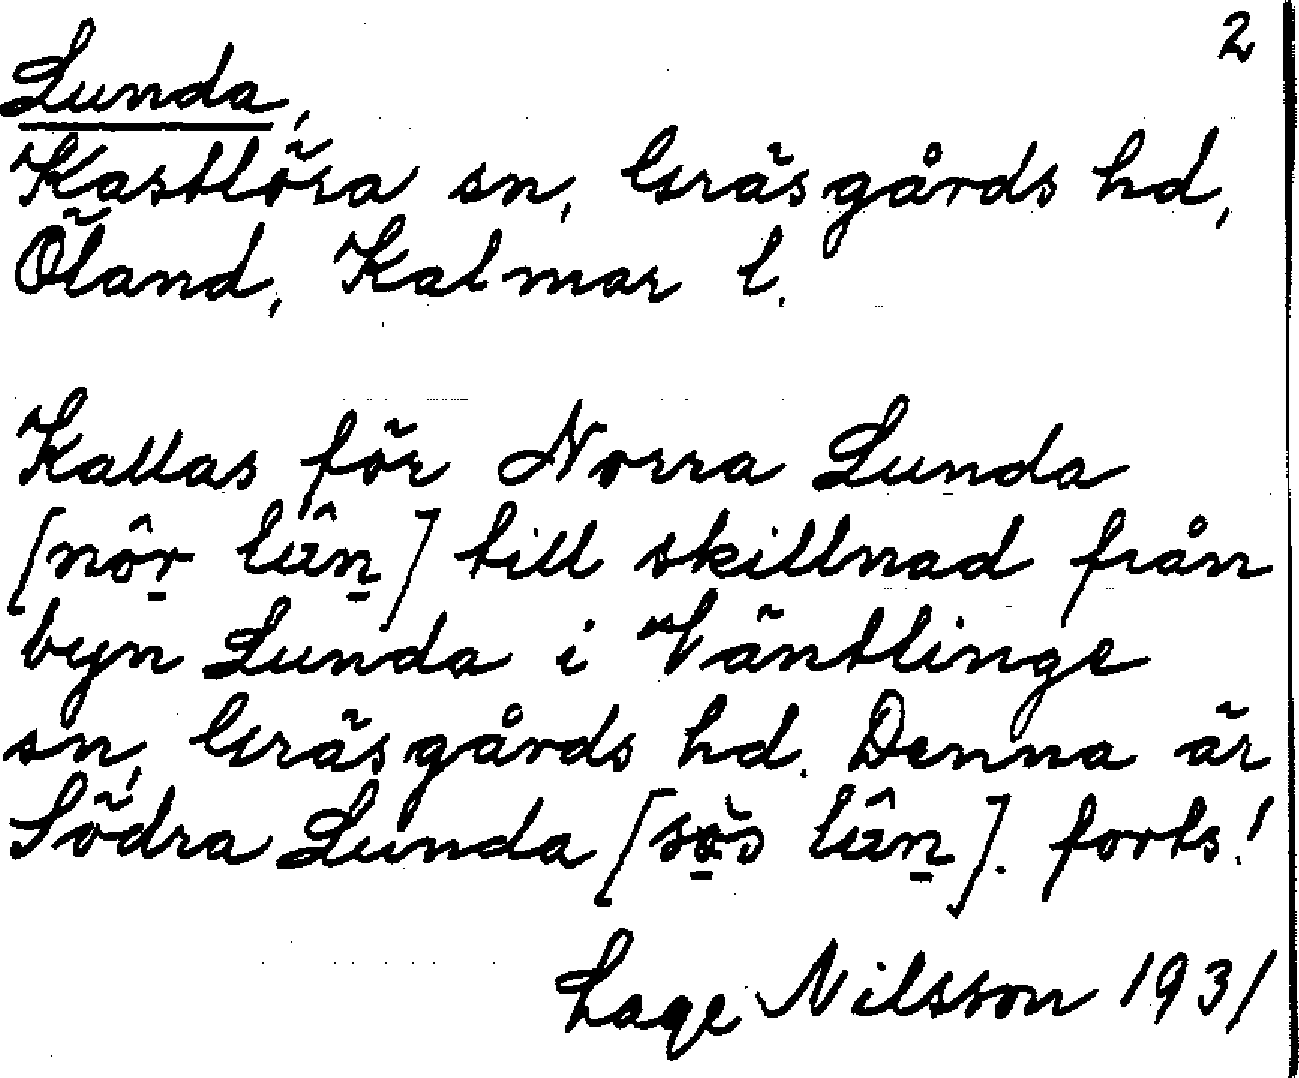 2
Lunda,
Kastlösa sn, Gräsgårds hd,
Öland, Kalmar l.
Kallas för Norra Lunda
[nôr lûn] till skillnad från
byn Lunda i Ventlinge
sn, Gräsgårds hd. Denna är
Södra Lunda [sös lûn]. forts!
Lage Nilsson 1931